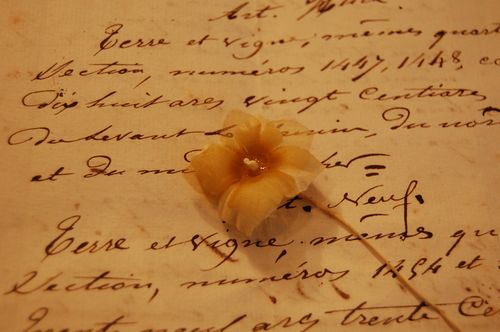 Art. Huit.
Terre et vigne, mêmes quar
Section, numéros 1447, 1448, co
dix huit ares vingt centiares
du levant le chemin, du nor
et du mi
t. Neuf.
Terre et vigne, mêmes qu
Section, numéros 1454 et
ares trente Ce